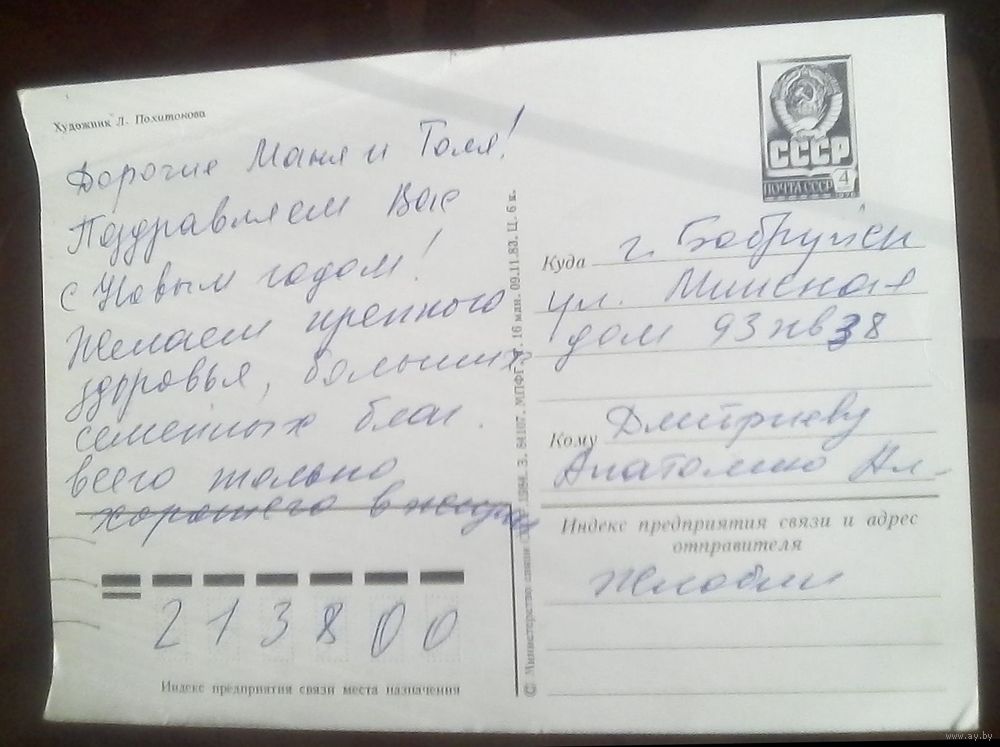 Художник Л. Похитонова
Дорогие Маня и Толя!
Поздравляем Вас
с Новым годом!
Желаем крепкого
здоровья, больших
семейных благ.
всего только
хорошего в жизни
213800
Индекс предприятия связи места назначения
© Министерство связи 1984. З. 84107. МПФГ 16 млн. 09.11.83. Ц. 6 к.
СССР
ПОЧТА СССР 4
Куда г. Бобруйск
ул. Минская
дом 93 кв 38
Кому Дмитриеву
Анатолию Ал-
Индекс предприятия связи и адрес
отправителя
Жлобин
www.ay.by